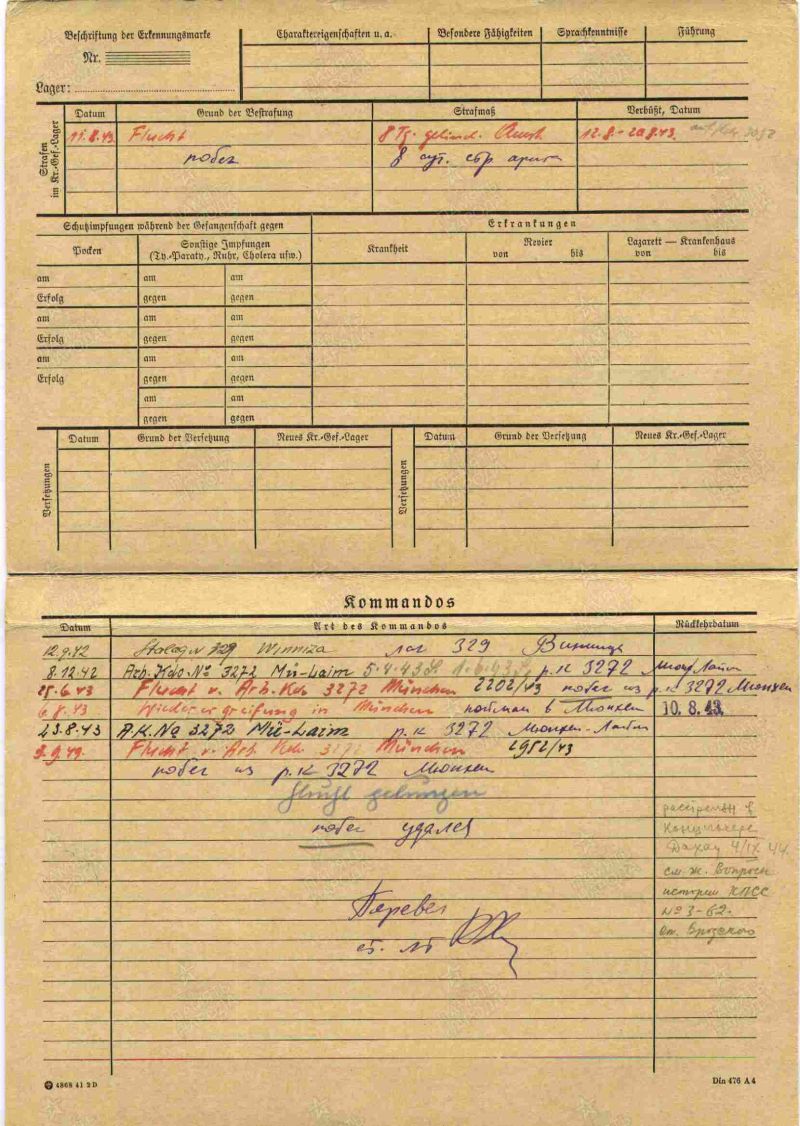 Beschriftung der Erkennungsmarke
Nr.
Lager:
Charaktereigenschaften u. a.
Besondere Fähigkeiten
Sprachkenntnisse
Führung
Strafen im Kr.-Gef.-Lager
Datum
Grund der Bestrafung
Strafmaß
Verbüßt, Datum
11.8.43 Flucht 8 Tg. gelind. Arrest 12.8.-20.8.43.
побег 8 сут. стр
Schutzimpfungen während der Gefangenschaft gegen
Erkrankungen
Pocken
Sonstige Impfungen
(Ty.-Paraty., Ruhr, Cholera usw.)
Krankheit
Revier
von bis
Lazarett — Krankenhaus
von bis
am am am
Erfolg gegen gegen
am am am
Erfolg gegen gegen
am am am
Erfolg gegen gegen
am am
gegen gegen
Versetzungen
Datum
Grund der Versetzung
Neues Kr.-Gef.-Lager
Versetzungen
Datum
Grund der Versetzung
Neues Kr.-Gef.-Lager
Kommandos
Datum
Art des Kommandos
Rückkehrdatum
12.9.42 Stalag 329 Winniza лаг 329 Винница
8.12.42 Arb. Kdo. No 3272 Mü-Laim 5.4.43 1.6.43 р.к 3272 Лайм
25.6.43 Flucht v. Arb. Kdo 3272 München 2202/43 побег из р.к 3272 Мюнхен
6.8.43 Wiederergreifung in München пойман в Мюнхен 10. 8. 43.
23.8.43 A.K. No 3272 Mü-Laim р.к 3272 Мюнхен-Лайм
9.9.43. Flucht v. Arb. Kdo 3272 München 2952/43
побег из р.к 3272 Мюнхен
Flucht gelungen
побег удался
расстрелян в
концлагере
Дахау 4/IX 44
см. ж. Вопросы
истории КПСС
№ 3-62.
ст. Бродского
Перевел
ст. лт
4868 41 2 D
Din 476 A 4